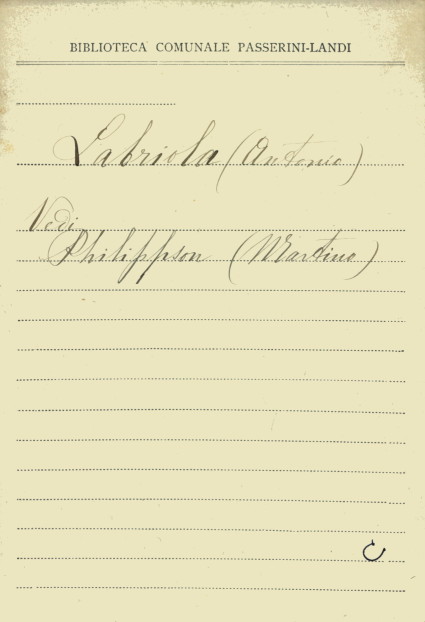 BIBLIOTECA COMUNALE PASSERINI-LANDI
Labriola (Antonio)
Vedi
Philippson (Martino)